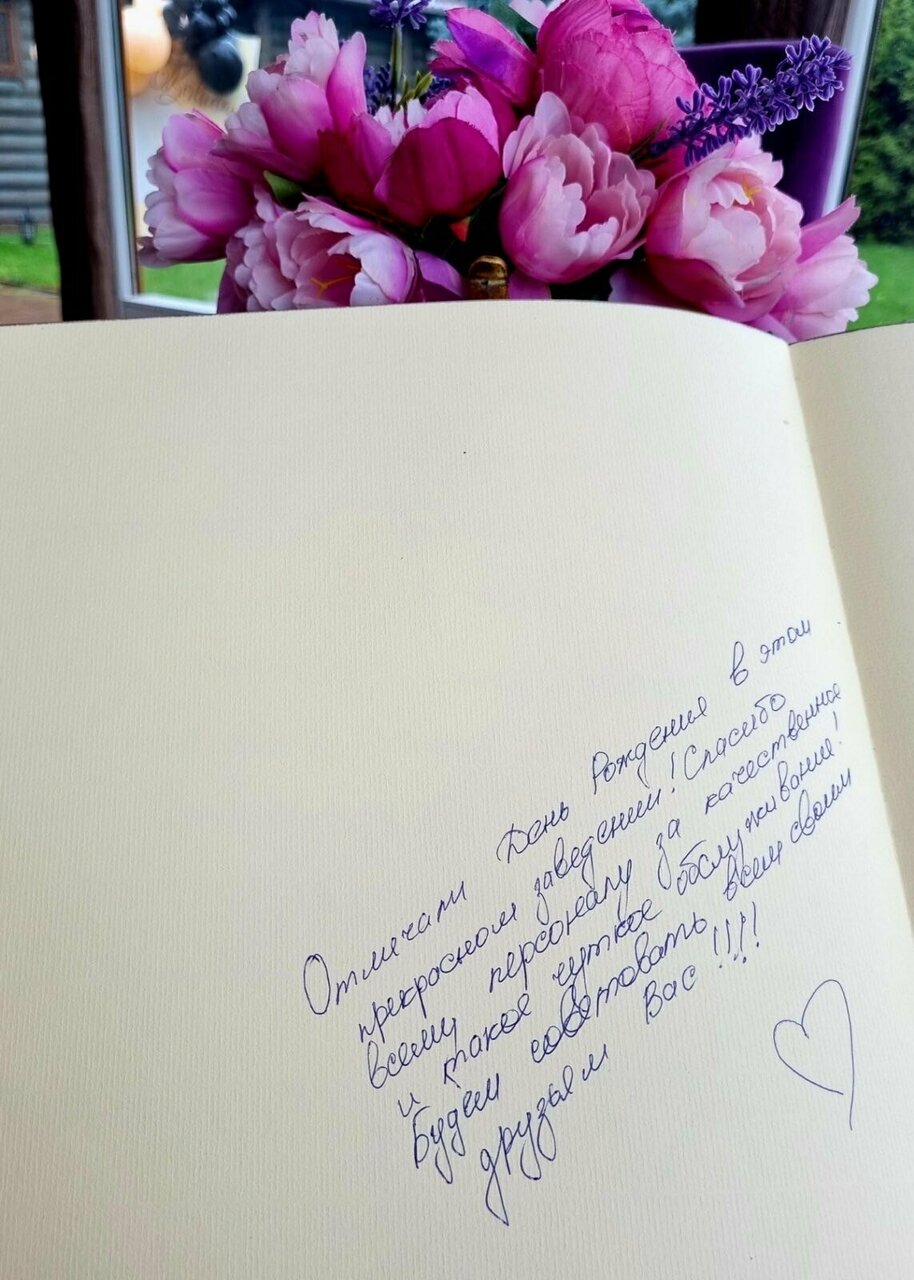 Отмечали День Рождения в этом
прекрасном заведении! Спасибо
всему персоналу за качественное
и такое чуткое обслуживание!
Будем советовать всем своим
друзьям Вас!!!!